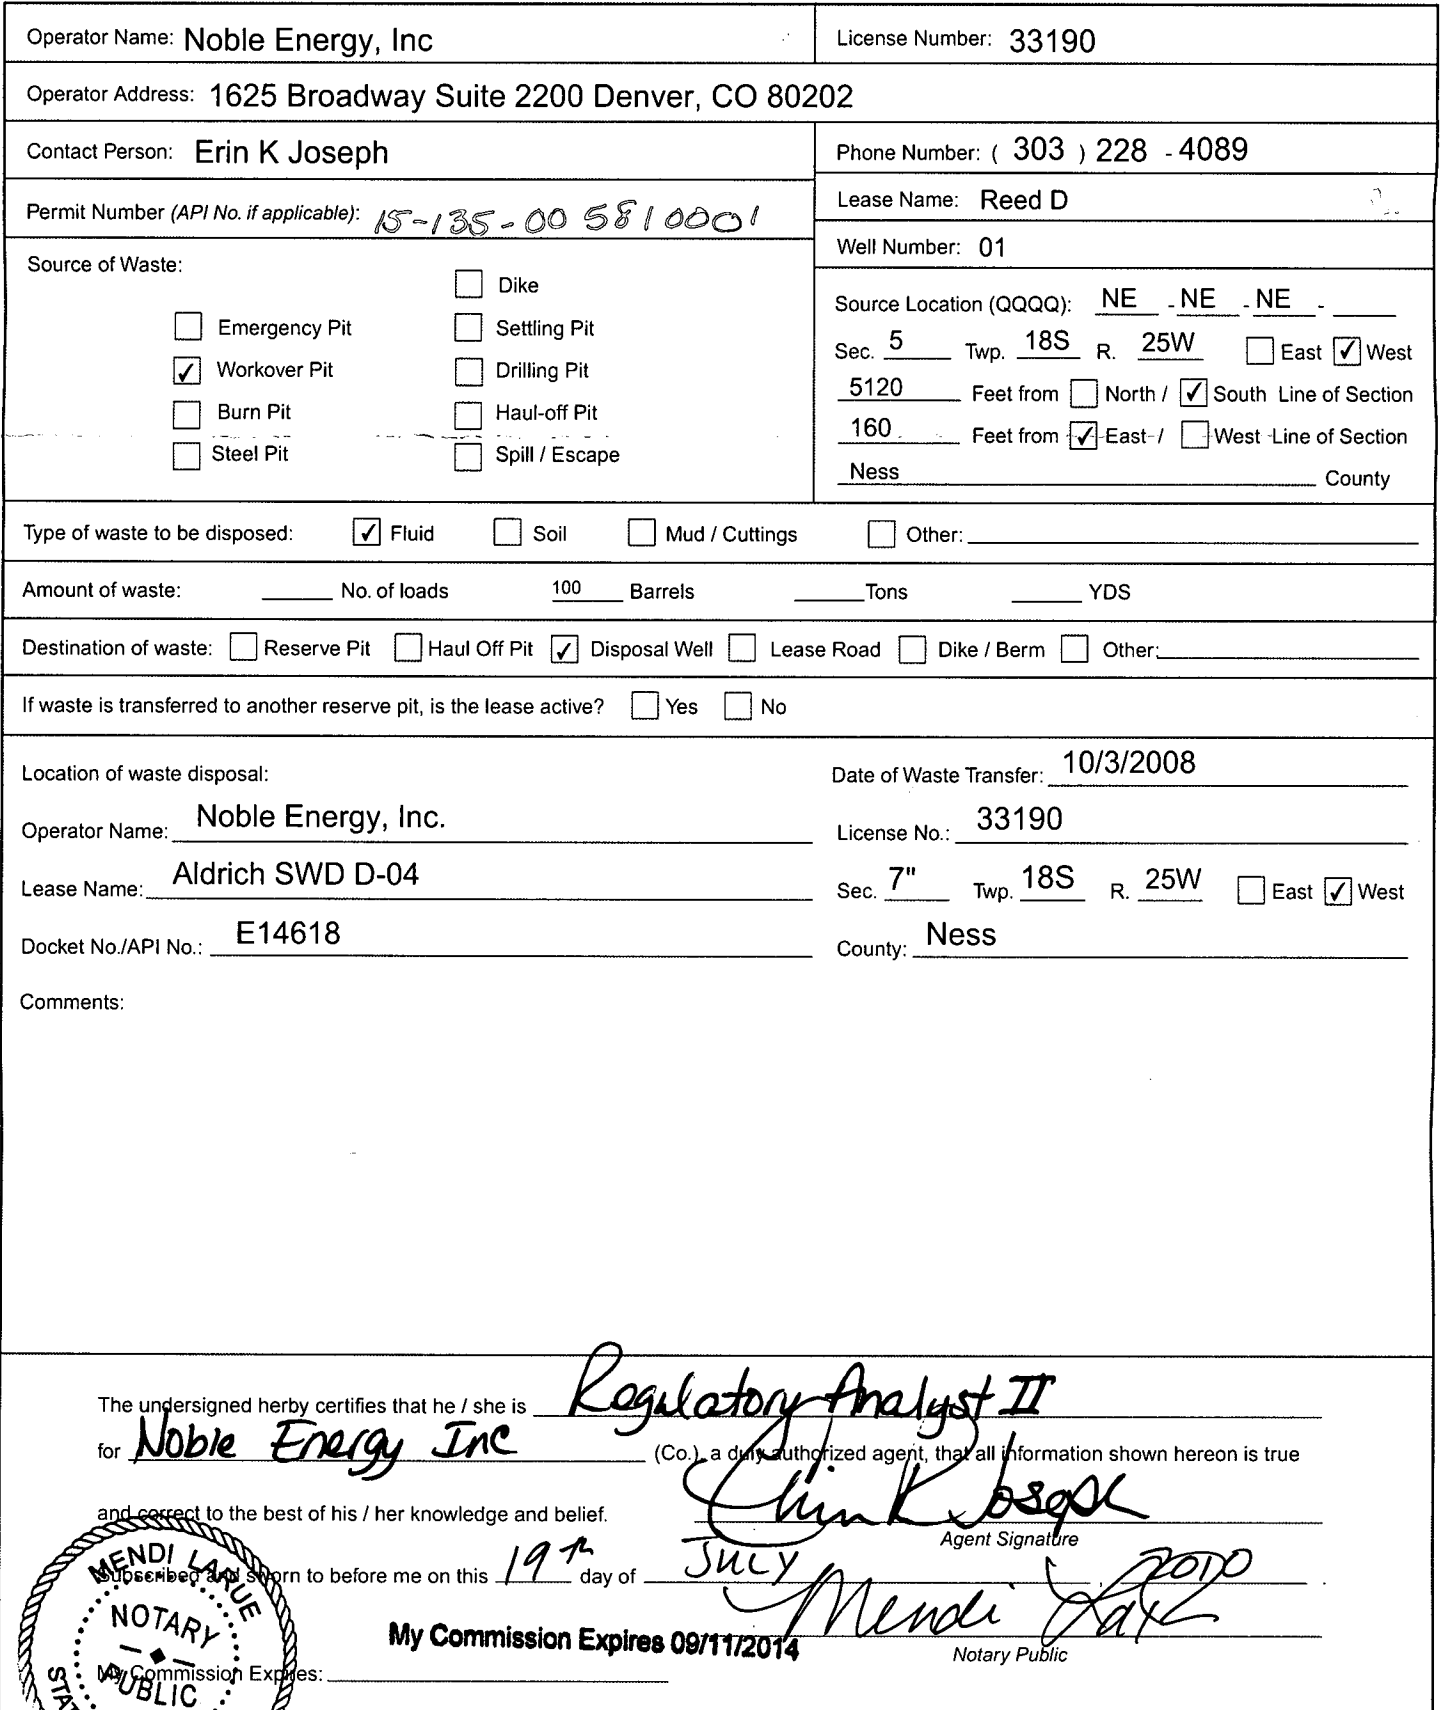 Operator Name: Noble Energy, Inc
License Number: 33190
Operator Address: 1625 Broadway Suite 2200 Denver, CO 80202
Contact Person: Erin K Joseph
Phone Number: ( 303 ) 228 - 4089
Permit Number (API No. if applicable): 15-135-00 5810001
Lease Name: Reed D
Well Number: 01
Source of Waste:
Dike
Emergency Pit
Settling Pit
✓ Workover Pit
Drilling Pit
Burn Pit
Haul-off Pit
Steel Pit
Spill / Escape
Source Location (QQQQ): NE - NE - NE -
Sec. 5 Twp. 18S R. 25W East ✓ West
5120 Feet from North / ✓ South Line of Section
160 Feet from ✓ East / West Line of Section
Ness County
Type of waste to be disposed: ✓ Fluid Soil Mud / Cuttings Other:
Amount of waste: No. of loads 100 Barrels Tons YDS
Destination of waste: Reserve Pit Haul Off Pit ✓ Disposal Well Lease Road Dike / Berm Other:
If waste is transferred to another reserve pit, is the lease active? Yes No
Location of waste disposal:
Date of Waste Transfer: 10/3/2008
Operator Name: Noble Energy, Inc.
License No.: 33190
Lease Name: Aldrich SWD D-04
Sec. 7" Twp. 18S R. 25W East ✓ West
Docket No./API No.: E14618
County: Ness
Comments:
The undersigned herby certifies that he / she is Regulatory Analyst II
for Noble Energy Inc (Co.), a duly authorized agent, that all information shown hereon is true
and correct to the best of his / her knowledge and belief. Erin K Joseph
Agent Signature
Subscribed and sworn to before me on this 19th day of July , 2010
Mendi LaRue
My Commission Expires 09/11/2014
Notary Public
My Commission Expires:
MENDI LARUE
NOTARY
PUBLIC